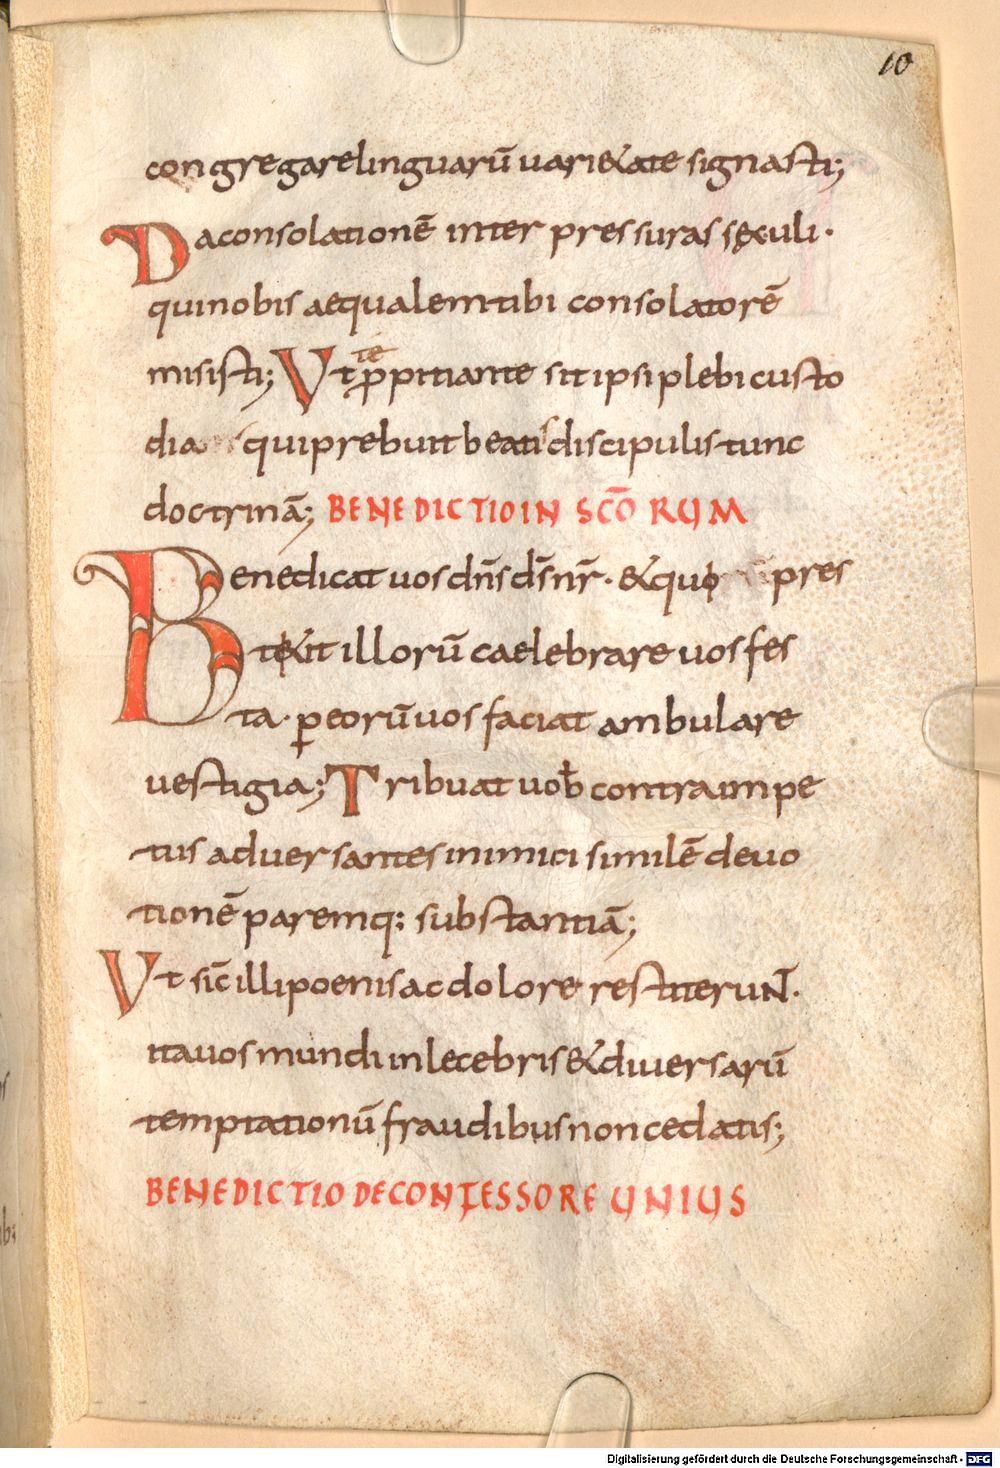 10
congregare linguarū uari&ate signasti;
Da consolationē inter pressuras sęculi·
qui nobis aequalem tibi consolatorē
misisti; Vt te p̄pitiante sit ipsi plebi custo
dia qui prebuit beatis discipulis tunc
doctrinā; BENEDICTIO IN SC̄ORUM
Benedicat uos dn̄s ds̄ nr̄· & quo pres
tit&it illorū caelebrare uos fes
ta· ꝑ eorū uos faciat ambulare
uestigia; Tribuat uob̄ contra impe
tus aduersantes inimici similē deuo
tionē paremq; substantiā;
Vt sic̄ illi poenis ac dolore restiterun̄·
ita uos mundi inlecebris & diuersarū
temptationū fraudibus non cedatis;
BENEDICTIO DE CONFESSORE UNIUS
Digitalisierung gefördert durch die Deutsche Forschungsgemeinschaft - DFG